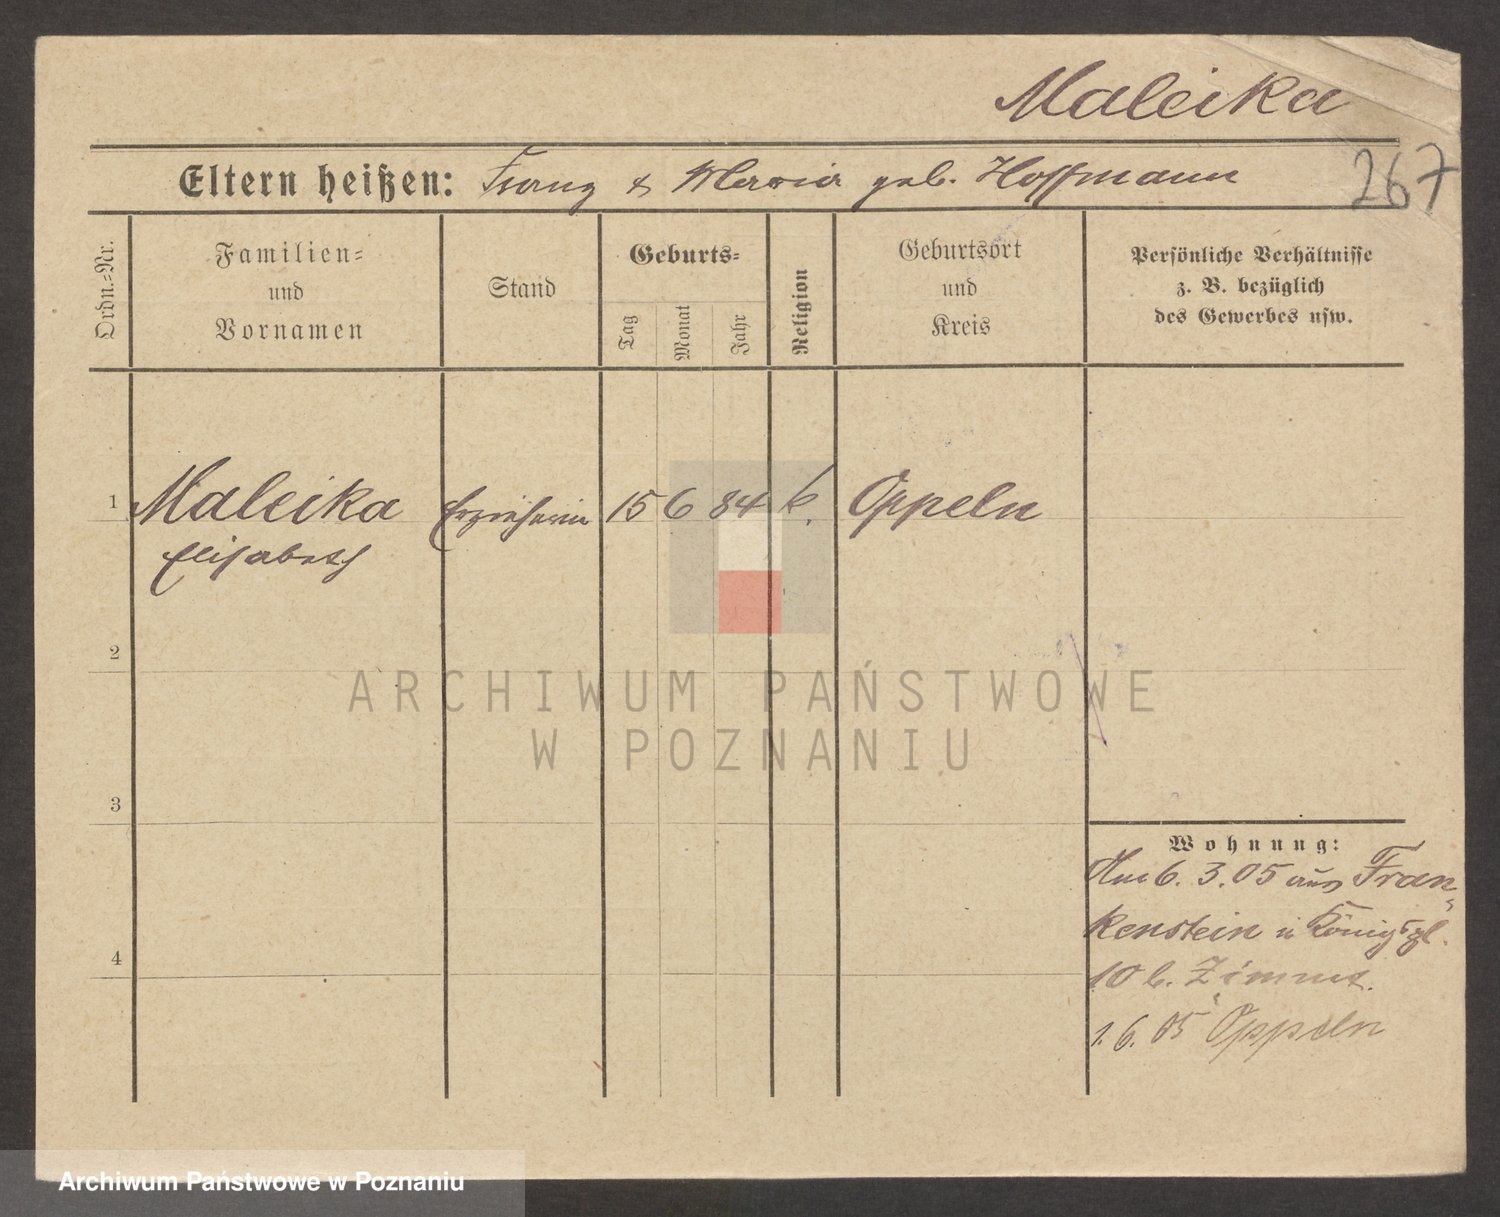 Maleika
267
Eltern heißen: Franz & Maria geb. Hoffmann
Ordn.=Nr.
Familien=
und
Vornamen
Stand
Geburts=
Tag
Monat
Jahr
Religion
Geburtsort
und
Kreis
Persönliche Verhältnisse
z. B. bezüglich
des Gewerbes usw.
1 Maleika Erzieherin 15 6 84 k. Oppeln
Elisabeth
2
3
4
Wohnung:
Am 6. 3. 05 aus Fran=
kenstein n. Königspl.
10 b. Zimmt.
1. 6. 05 Oppeln
ARCHIWUM PAŃSTWOWE
W POZNANIU
Archiwum Państwowe w Poznaniu